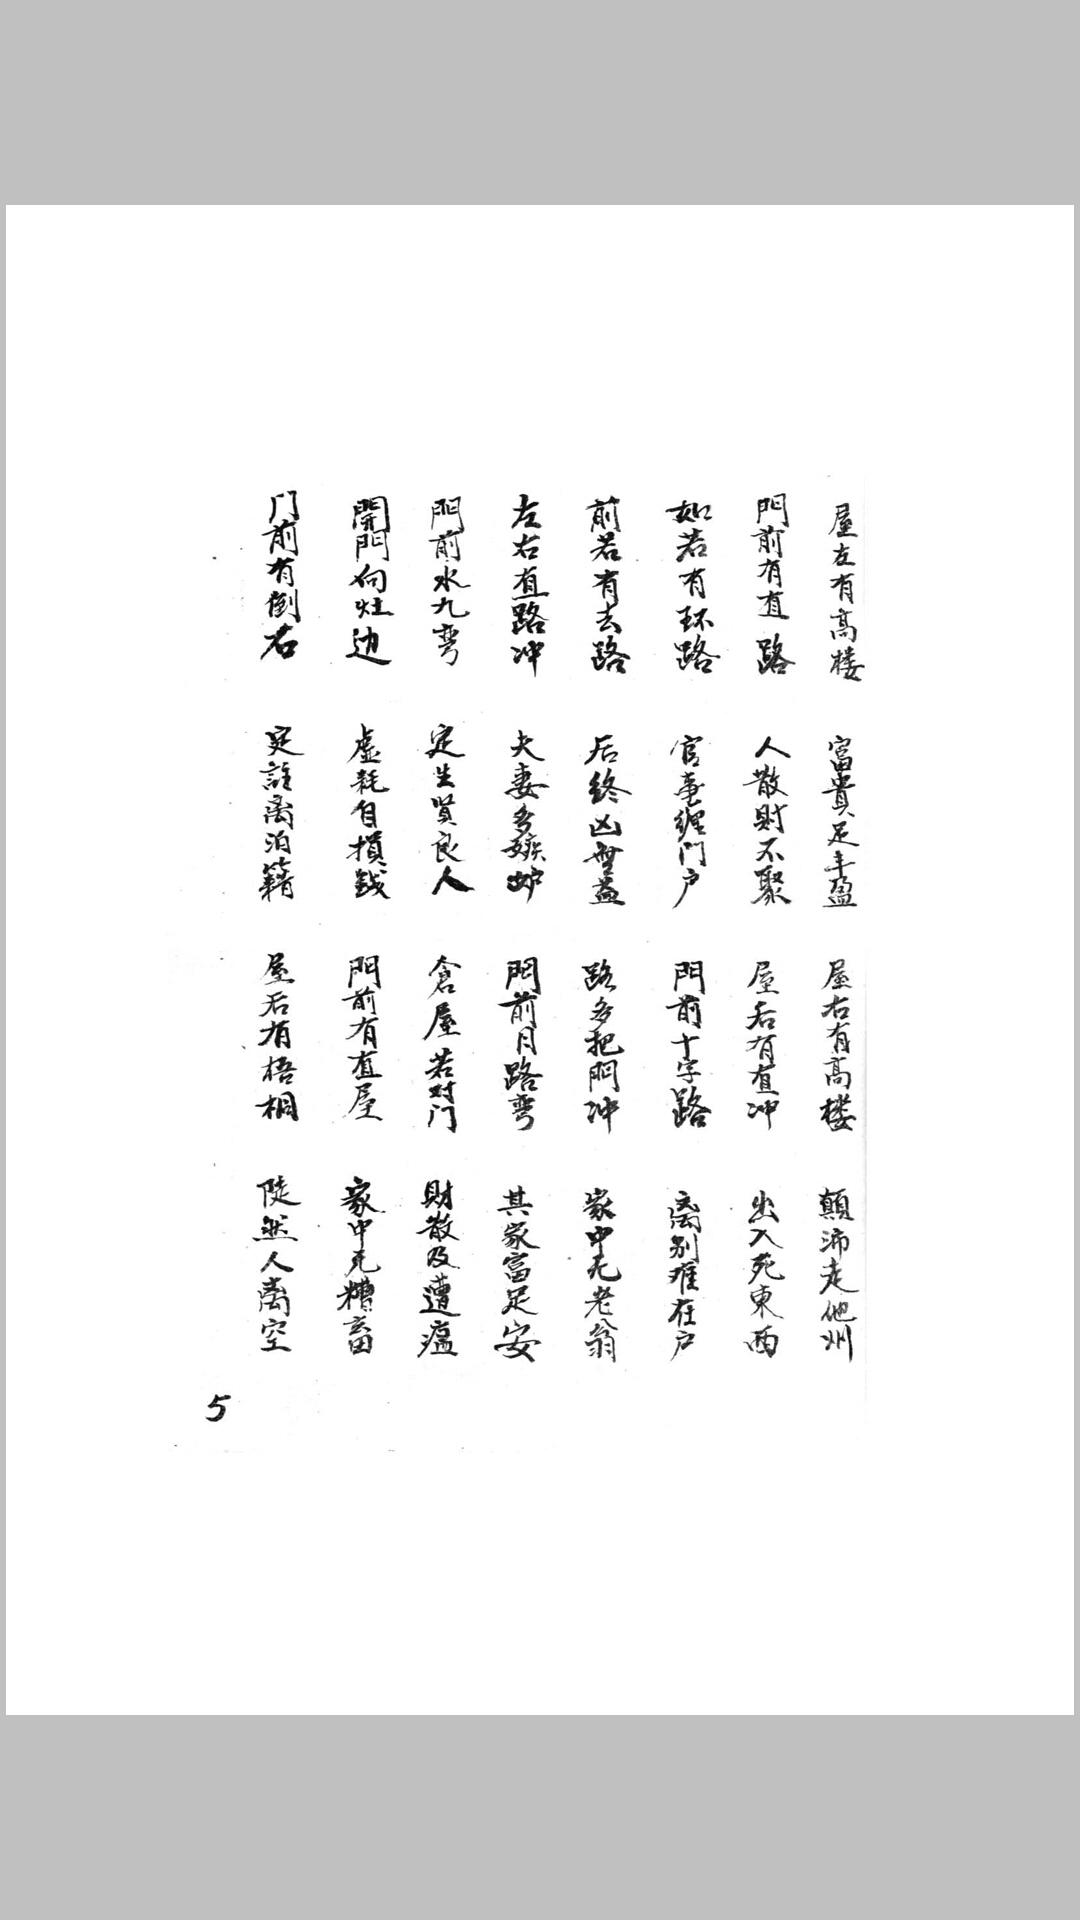 屋左有高楼　富貴足丰盈　屋右有高楼　顛沛走他州
門前有直路　人散財不聚　屋后有直冲　出入死東西
如若有环路　官事纏门户　門前十字路　离别难在户
前若有去路　后终凶無益　路多把門冲　家中无老翁
左右直路冲　夫妻多嫉妒　門前月路弯　其家富足安
門前水九弯　定生贤良人　倉屋若对门　財散及遭瘟
開門向灶边　虚耗自損錢　門前有直屋　家中无糟畜
门前有倒石　定離泊籍　屋后有梧桐　陡然人离空
5